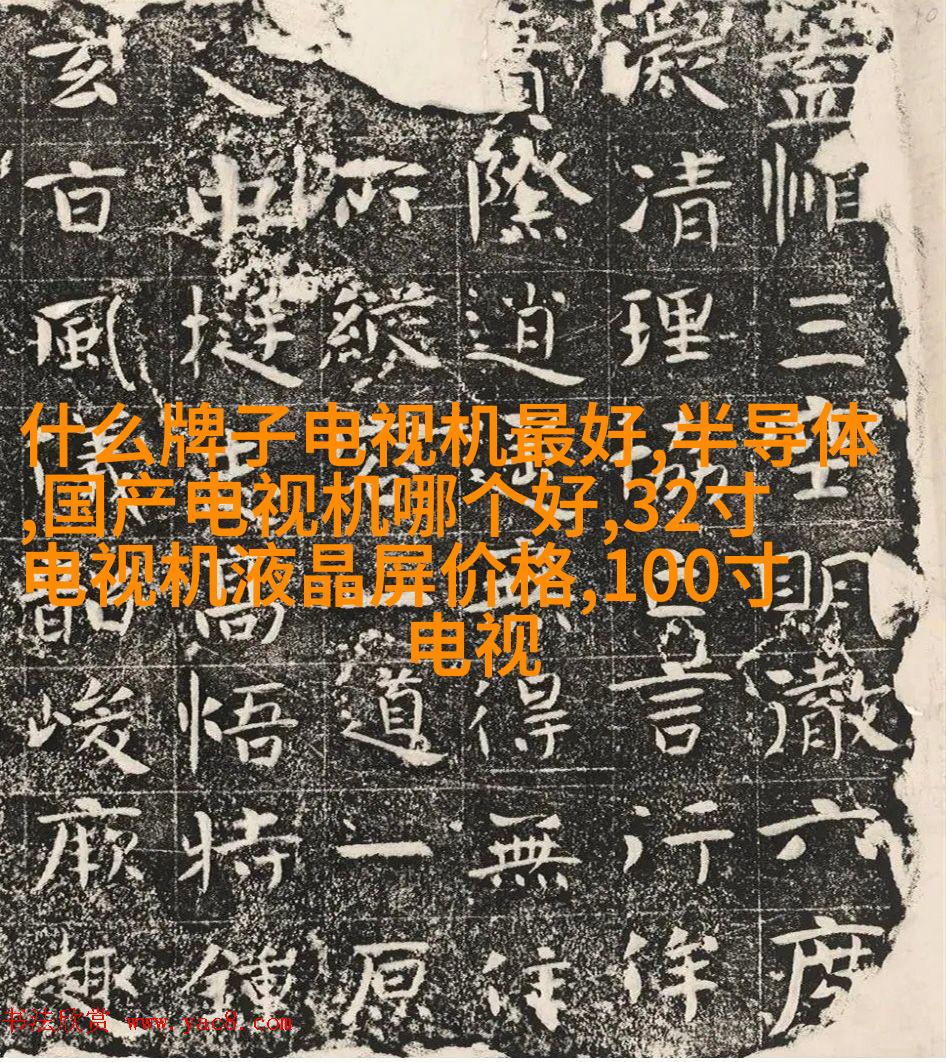 什么牌子电视机最好,半导体
,国产电视机哪个好,32寸
电视机液晶屏价格,100寸
电视
蓋三空明澈六度
凝清理言行
際逍得無住
所道一原
中挺高悟特鍾
玄百風韶峻厥趣
书法欣赏 www.yac8.com